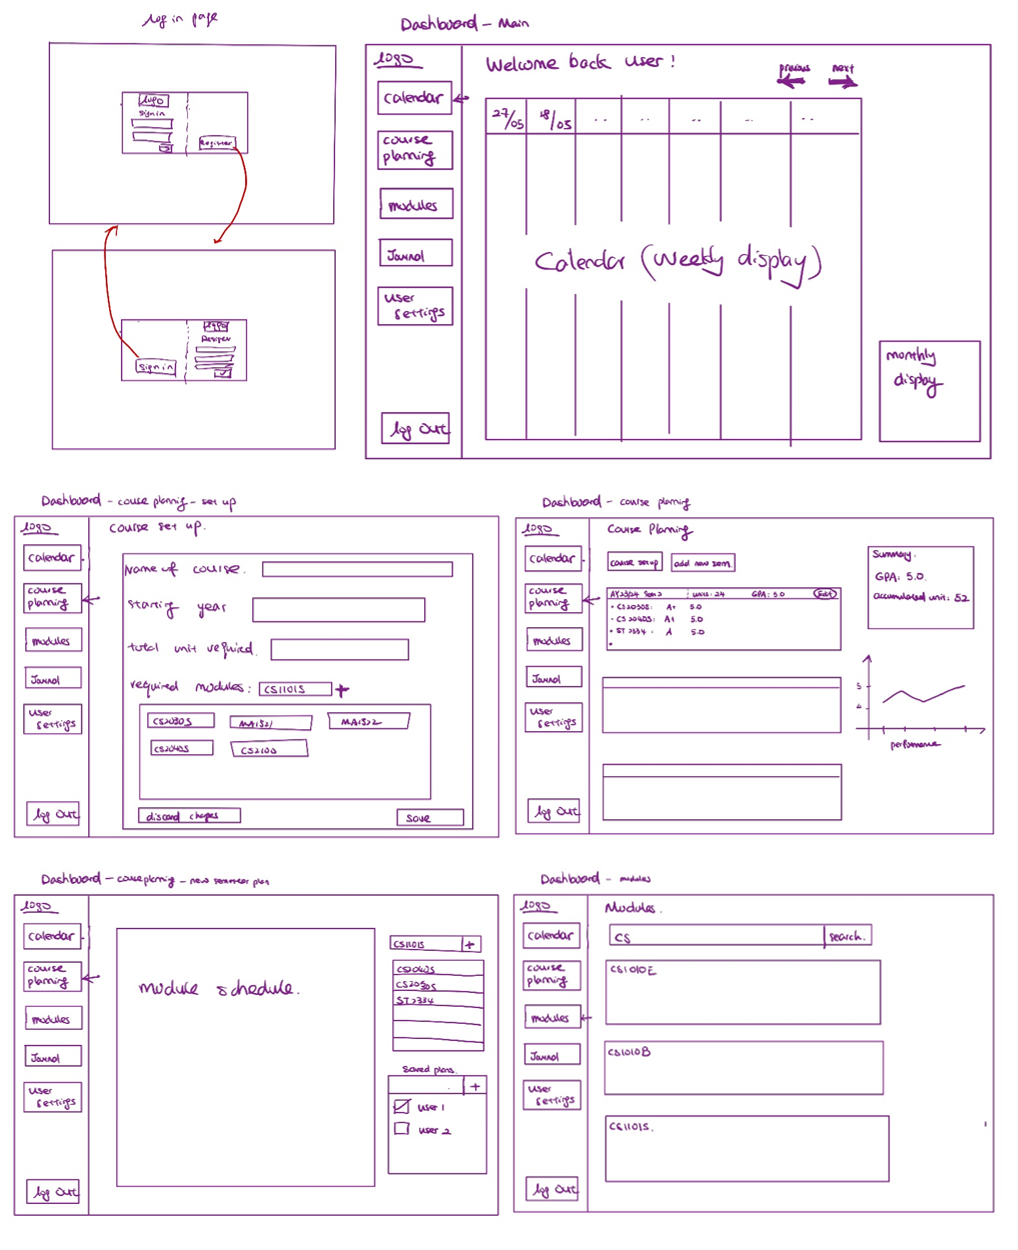 Log in page
logo
sign in
Register
logo
Register
sign in
Dashboard - Main
logo
Calendar
course
planning
modules
Journal
user
settings
log out
Welcome back user!
previous
next
27/05
28/05
..
..
..
..
..
Calendar (Weekly display)
monthly
display
Dashboard - course planning - set up
logo
calendar
course
planning
modules
Journal
user
settings
log out
course set up.
Name of course.
starting year
total unit required.
required modules: CS1101S +
CS2030S
MA1521
MA1522
CS2040S
CS2100
discard changes
save
Dashboard - course planning
logo
calendar
course
planning
modules
Journal
user
settings
log out
Course Planning
course setup
add new sem
AY23/24 Sem 2 units: 24 GPA: 5.0 Edit
- CS2030S: A+ 5.0
- CS2040S: A+ 5.0
- ST2334: A 5.0
Summary.
GPA: 5.0.
accumulated unit: 52
5
4
performance
Dashboard - course planning - new semester plan
logo
calendar
course
planning
modules
Journal
user
settings
log out
module schedule.
CS1101S +
CS2040S
CS2030S
ST2334
Saved plans.
+
user 1
user 2
Dashboard - modules
logo
calendar
course
planning
modules
Journal
user
settings
log out
Modules.
CS
search.
CS1010E
CS1010B
CS1101S.